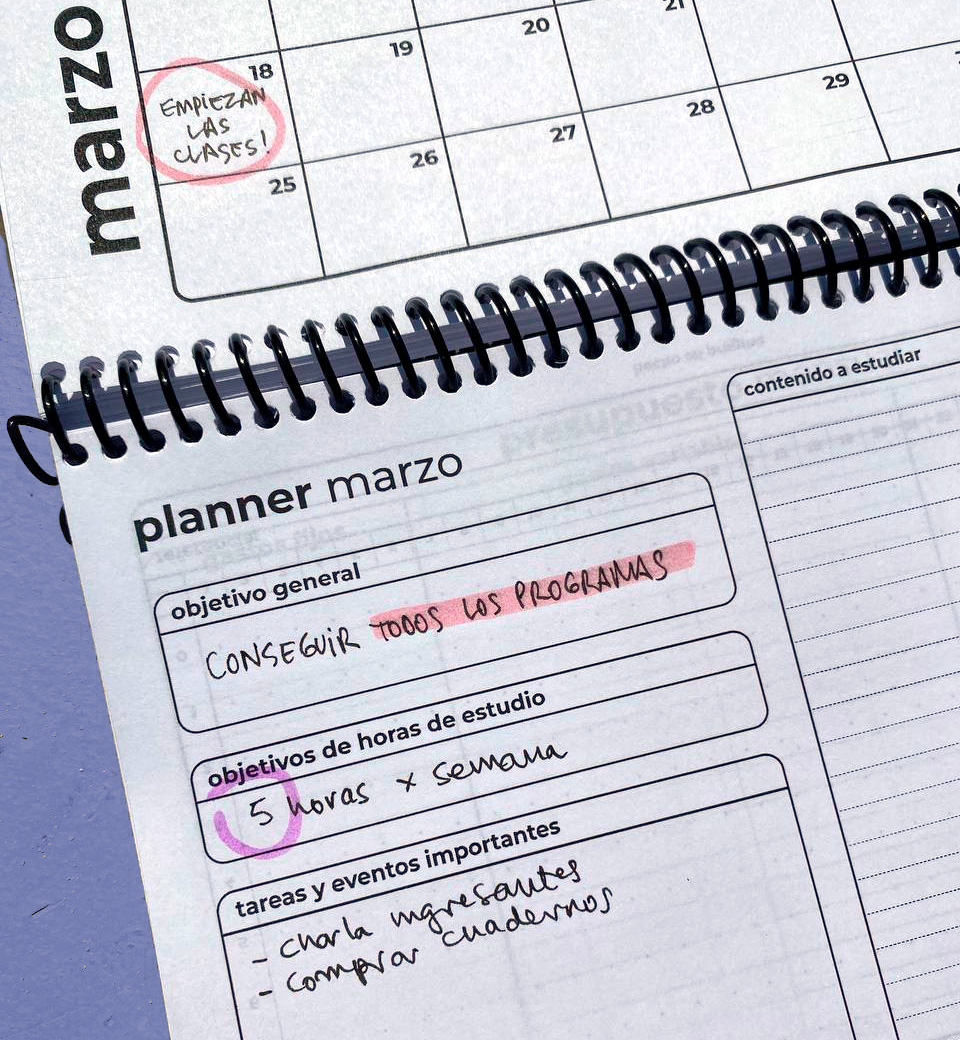 marzo
20
21
18
19
29
EMPIEZAN
LAS
CLASES!
28
27
26
25
contenido a estudiar
planner marzo
objetivo general
CONSEGUIR TODOS LOS PROGRAMAS
objetivos de horas de estudio
5 horas x semana
tareas y eventos importantes
- charla ingresantes
- comprar cuadernos